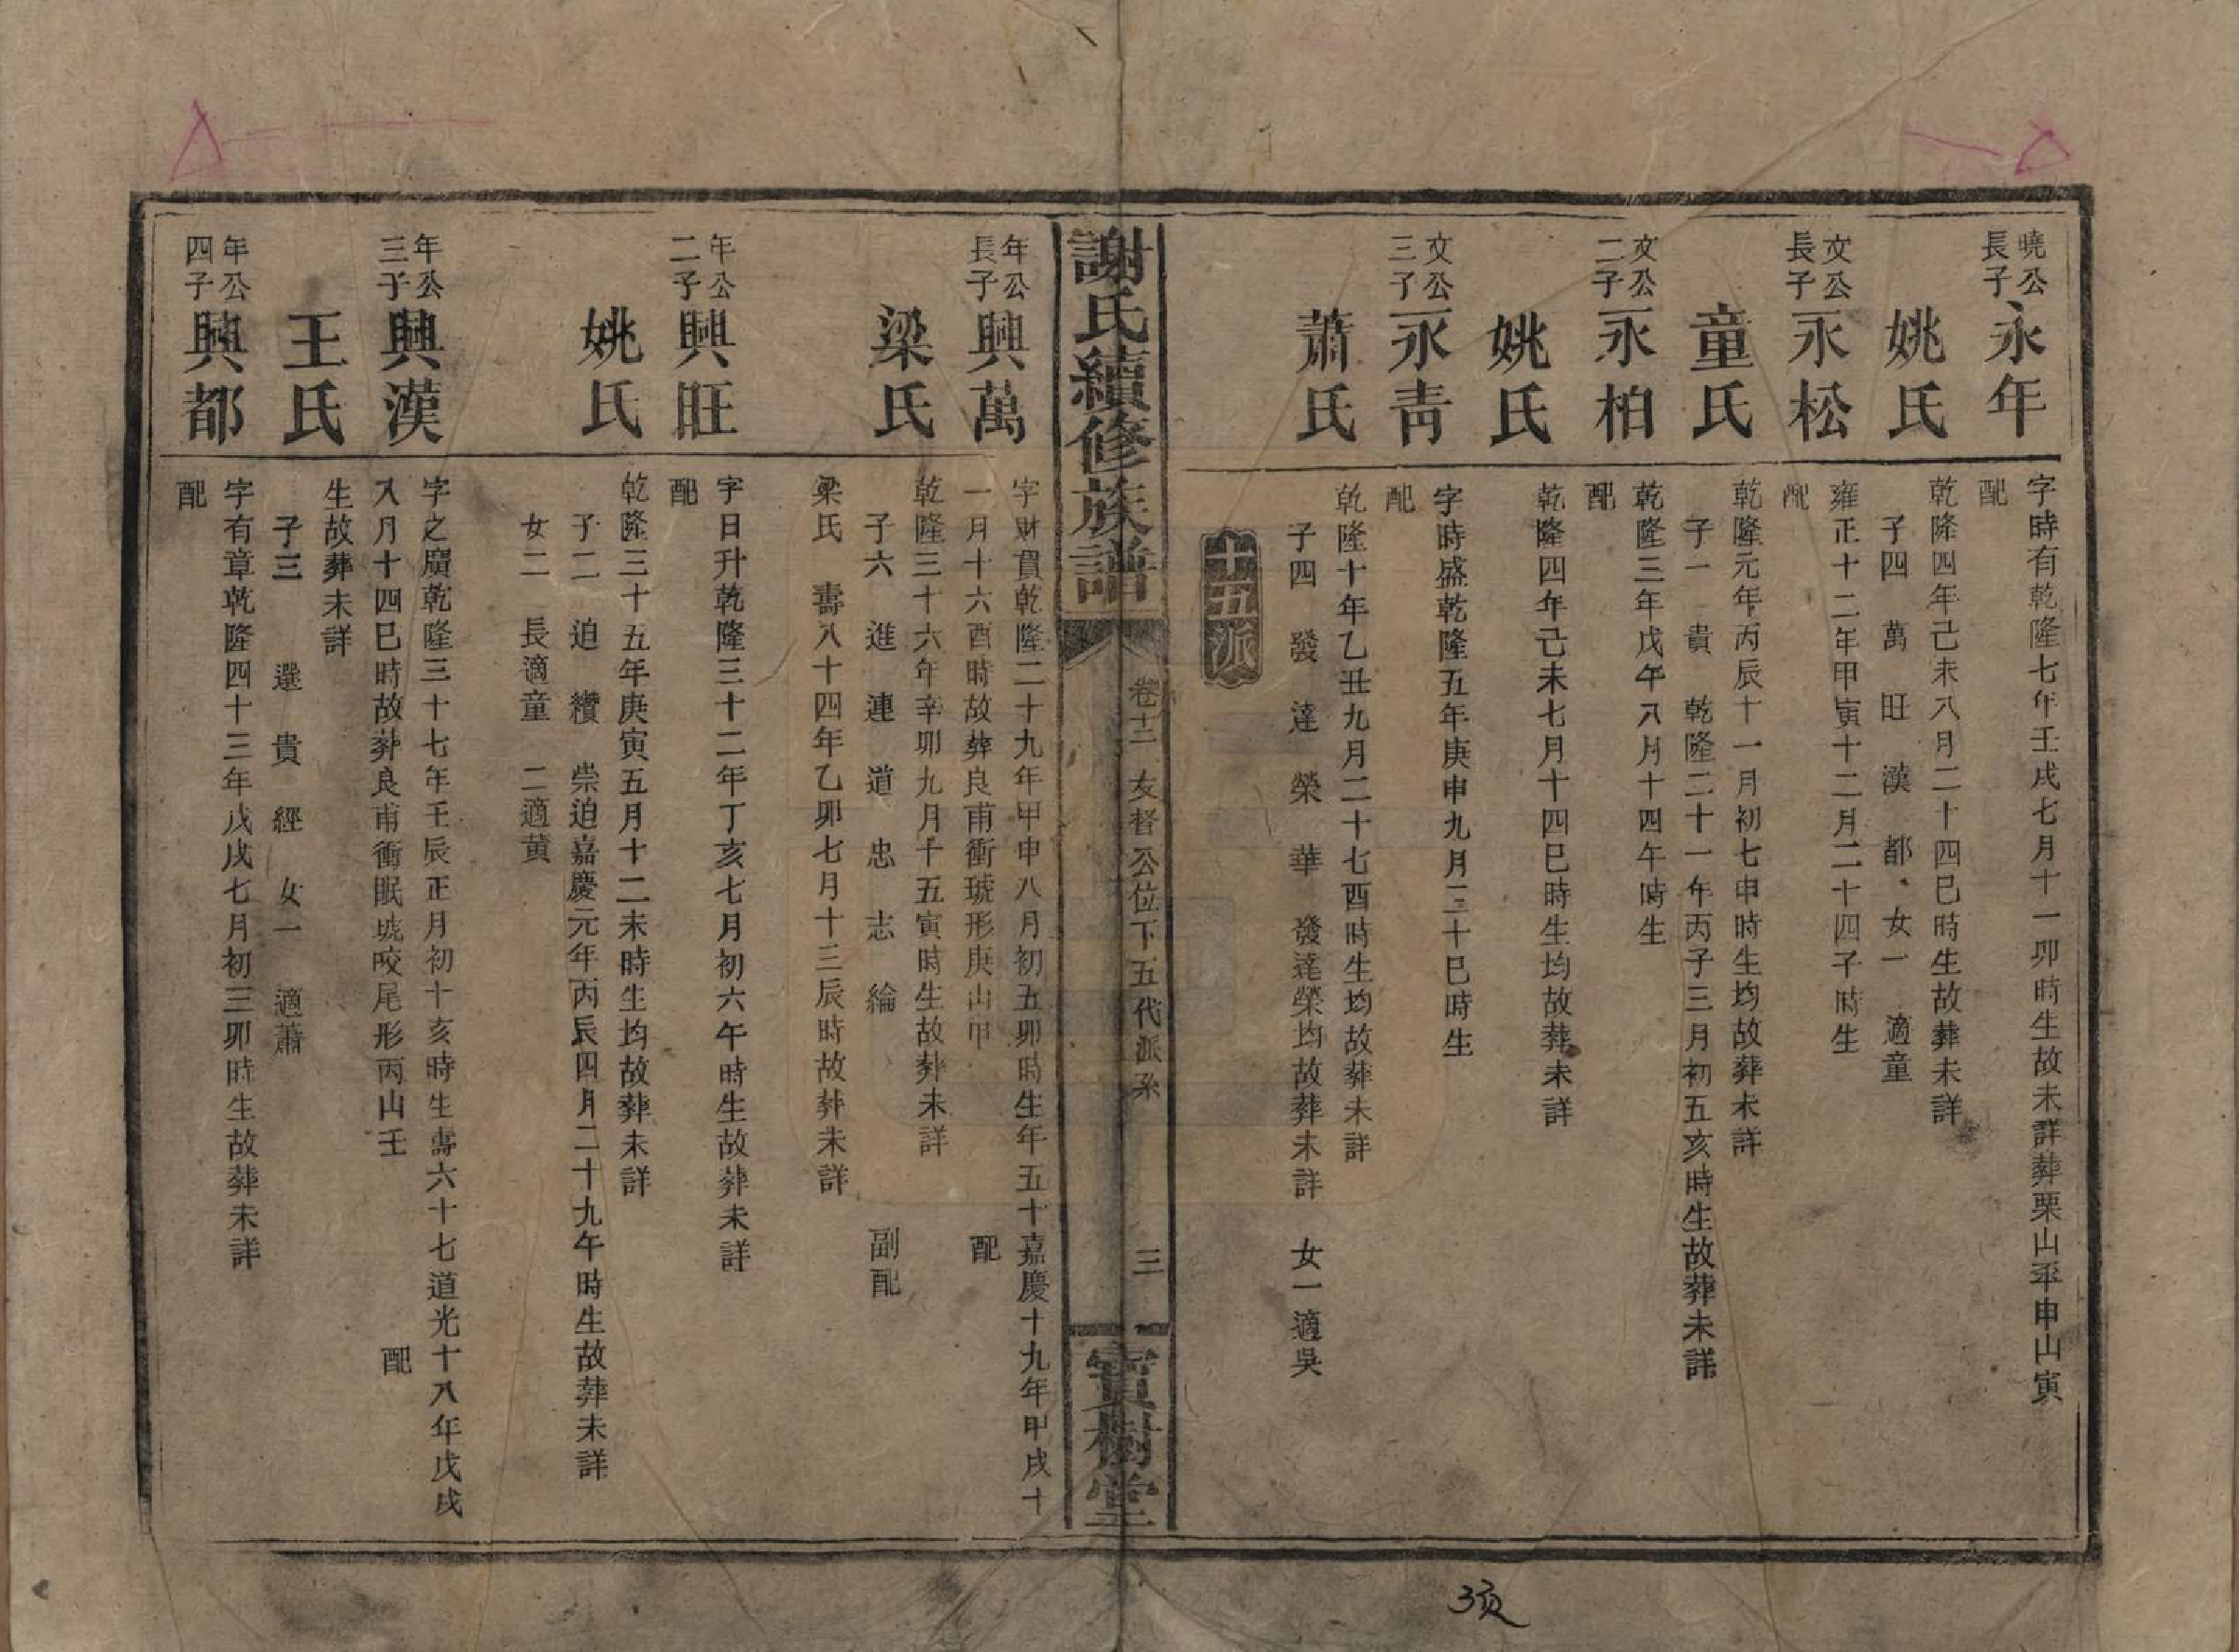 曉公長子永年
字時有乾隆七年壬戌七月十一卯時生故未詳葬栗山平申山寅
配
姚氏
乾隆四年己未八月二十四巳時生故葬未詳
子四 萬 旺 漢 都 女一 適童
文公長子永松
雍正十二年甲寅十二月二十四子時生
配
童氏
乾隆元年丙辰十一月初七申時生均故葬未詳
子一 貴 乾隆二十一年丙子三月初五亥時生故葬未詳
文公二子永柏
乾隆三年戊午八月十四午時生
配
姚氏
乾隆四年己未七月十四巳時生均故葬未詳
文公三子永青
字時盛乾隆五年庚申九月二十巳時生
配
蕭氏
乾隆十年乙丑九月二十七酉時生均故葬未詳
子四 發 達 榮 華 發達榮均故葬未詳 女一適吳
十五派
謝氏續修族譜
卷十二 友督公位下五代派系 三
寶樹堂
年公長子興萬
字財貫乾隆二十九年甲申八月初五卯時生年五十嘉慶十九年甲戌十
一月十六酉時故葬良甫衝琥形庚山甲 配
梁氏
乾隆三十六年辛卯九月十五寅時生故葬未詳
子六 進 連 道 忠 志 綸 副配
梁氏 壽八十四年乙卯七月十三辰時故葬未詳
年公二子興旺
字日升乾隆三十二年丁亥七月初六午時生故葬未詳
配
姚氏
乾隆三十五年庚寅五月十二未時生均故葬未詳
子二 迫 纘 崇迫嘉慶元年丙辰四月二十九午時生故葬未詳
女二 長適童 二適黄
年公三子興漢
字之廣乾隆三十七年壬辰正月初十亥時生壽六十七道光十八年戊戌
八月十四巳時故葬良甫衝眠琥咬尾形丙山壬 配
王氏
生故葬未詳
子三 選 貴 經 女一 適蕭
年公四子興都
字有章乾隆四十三年戊戌七月初三卯時生故葬未詳
配